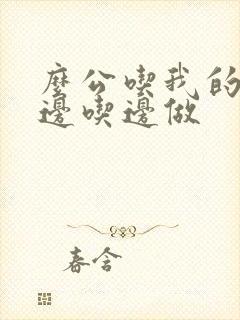 麼公喫我的
邊喫邊做
春含